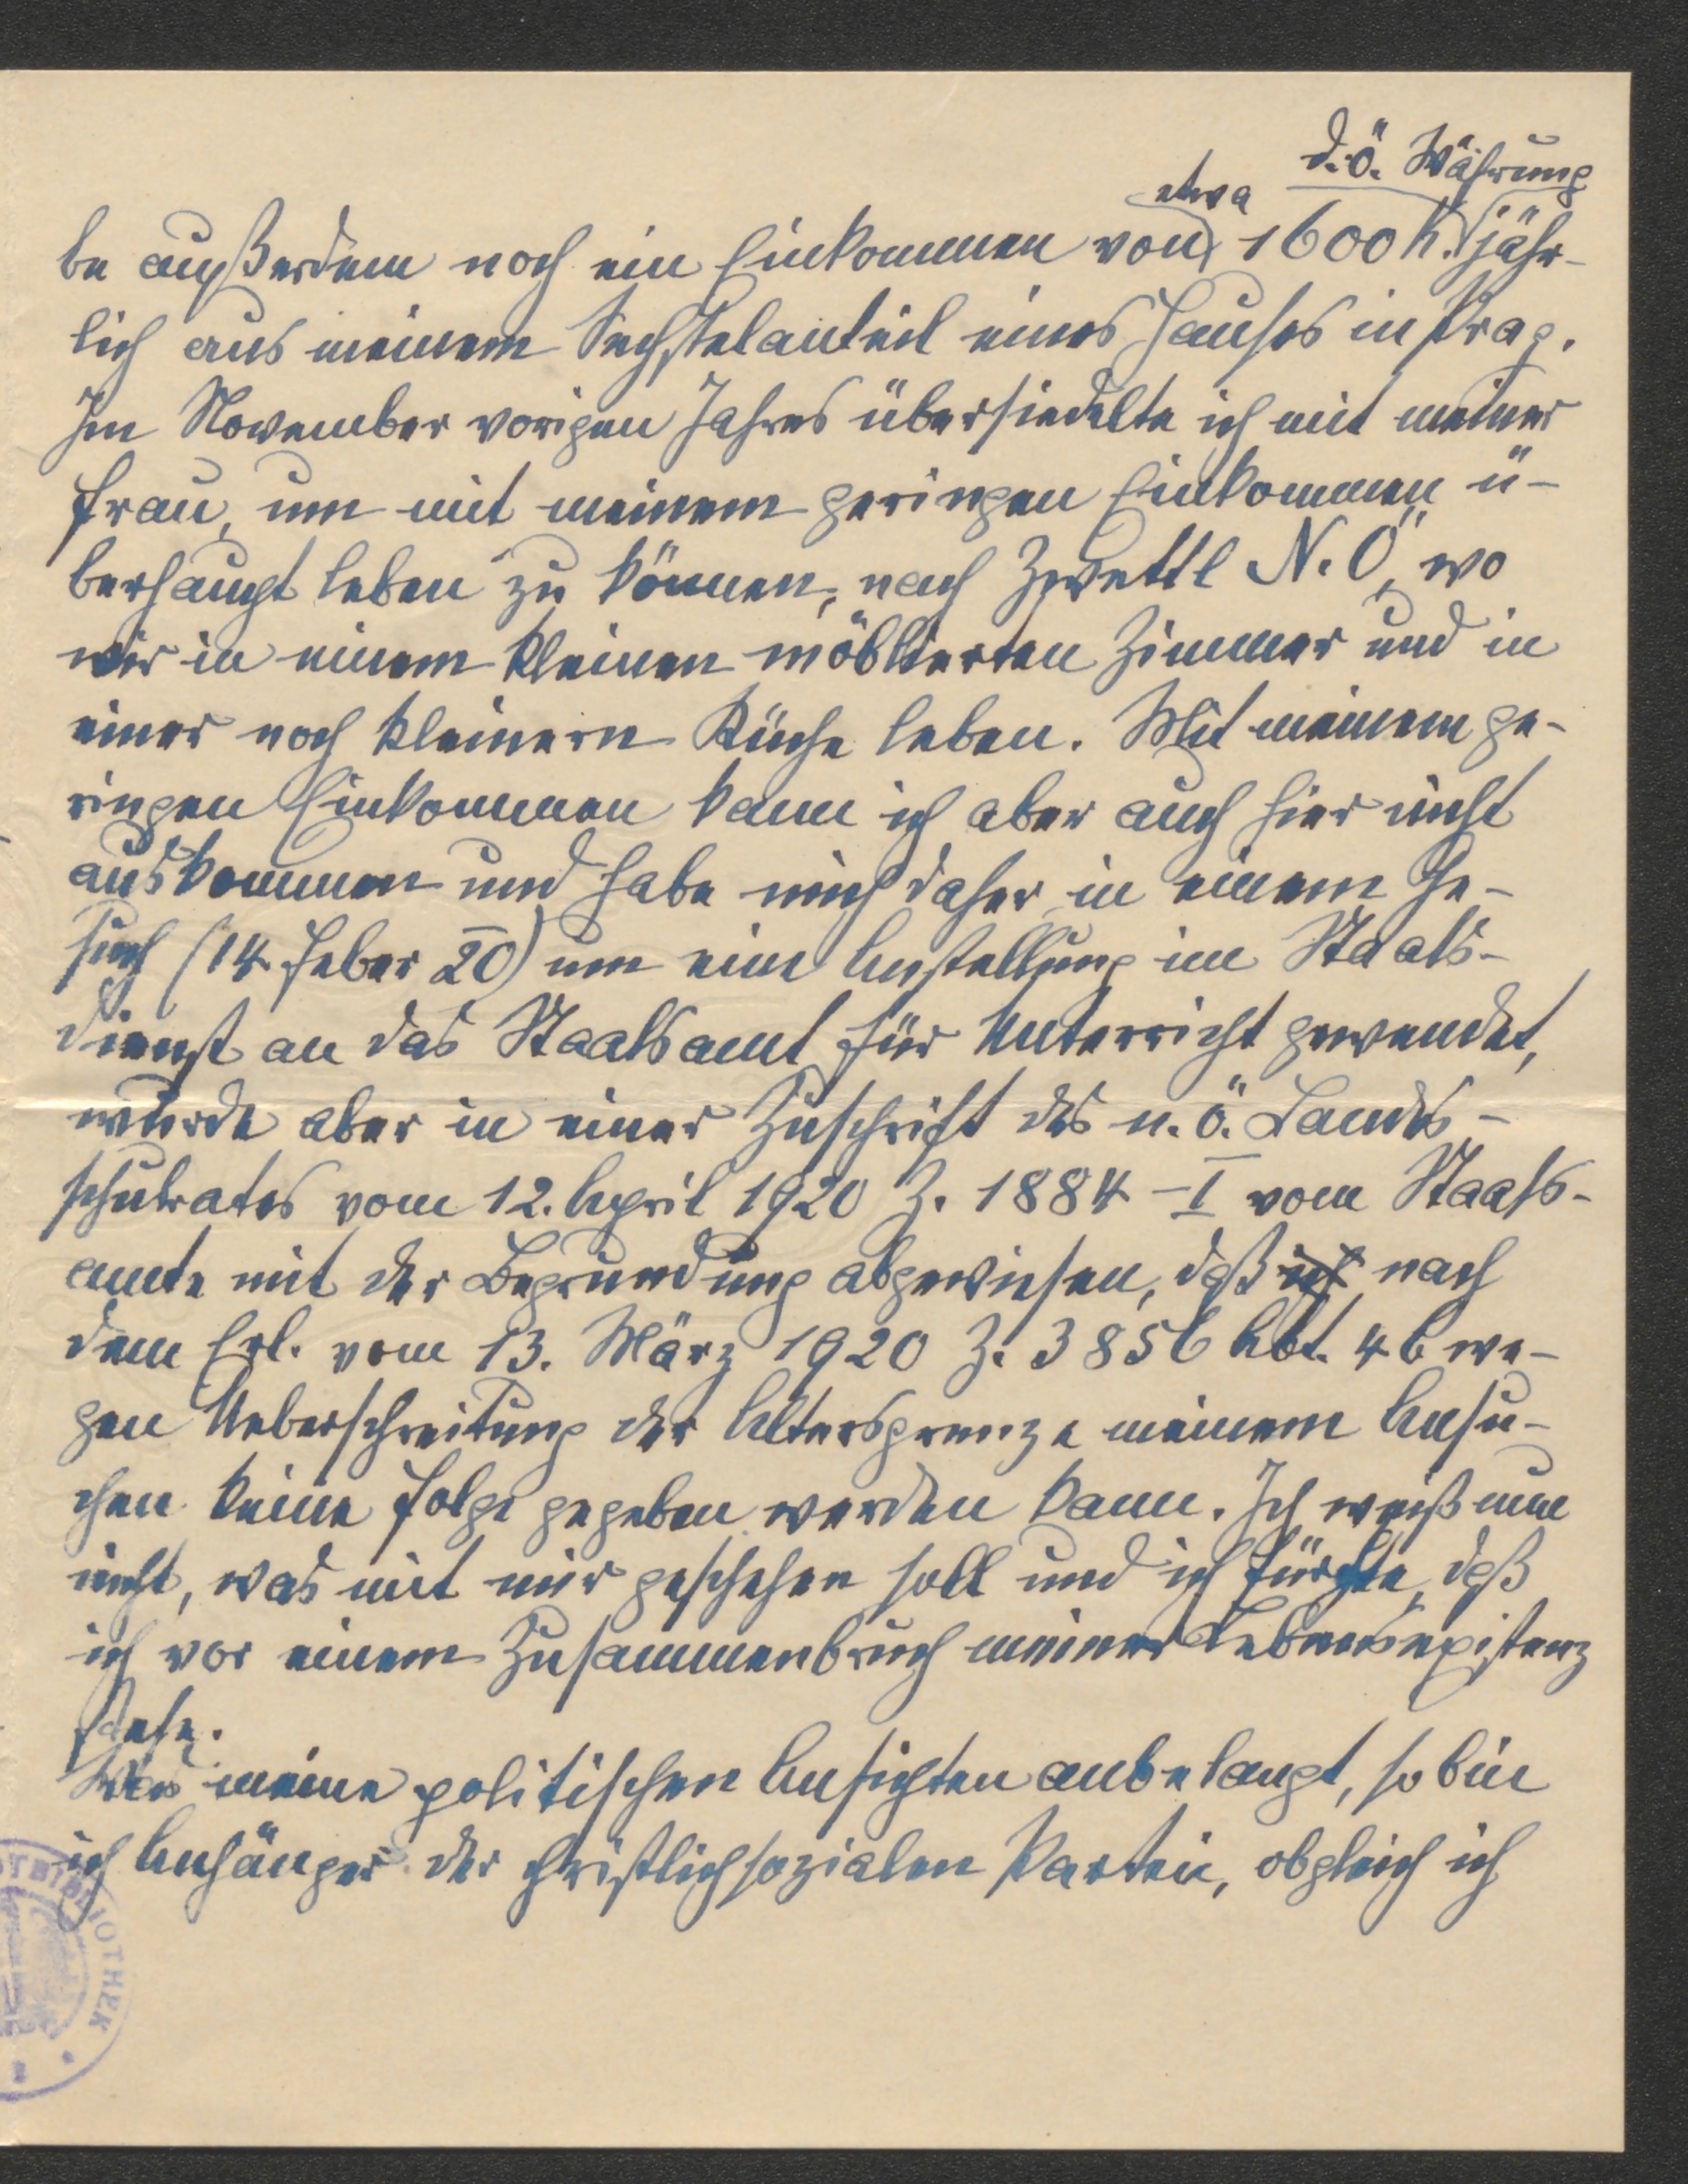 d. ö. Währung
etwa
be außerdem noch ein Einkommen von 1600 K. jähr-
lich aus meinem Sechstelanteil eines Hauses in Prag.
Im November vorigen Jahres übersiedelte ich mit meiner
Frau, um mit meinem geringen Einkommen ü-
berhaupt leben zu können, nach Zwettl N.Ö, wo
wir in einem kleinen möblierten Zimmer und in
einer noch kleinern Küche leben. Mit meinem ge-
ringen Einkommen kann ich aber auch hier nicht
auskommen und habe mich daher in einem Ge-
such (14. Feber 20) um eine Anstellung im Staats-
dienst an das Staatsamt für Unterricht gewendet,
wurde aber in einer Zuschrift des n. ö. Landes-
schulrates vom 12. April 1920 Z. 1884 - I vom Staats-
amte mit der Begründung abgewiesen, daß ich nach
dem Erl. vom 13. März 1920 Z. 3856 Abt. 4 b we-
gen Ueberschreitung der Altersgrenze meinem Ansu-
chen keine Folge gegeben werden kann. Ich weiß nun
nicht, was mit mir geschehen soll und ich fürchte, daß
ich vor einem Zusammenbruch meiner Lebensexistenz
stehe.
Was meine politischen Ansichten anbelangt, so bin
ich Anhänger der christlichsozialen Partei, obgleich ich